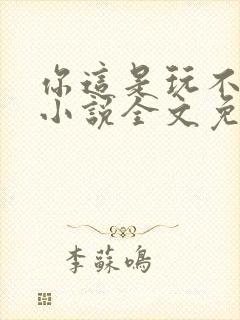 你這是玩不
小說全文免
李蘇鳴